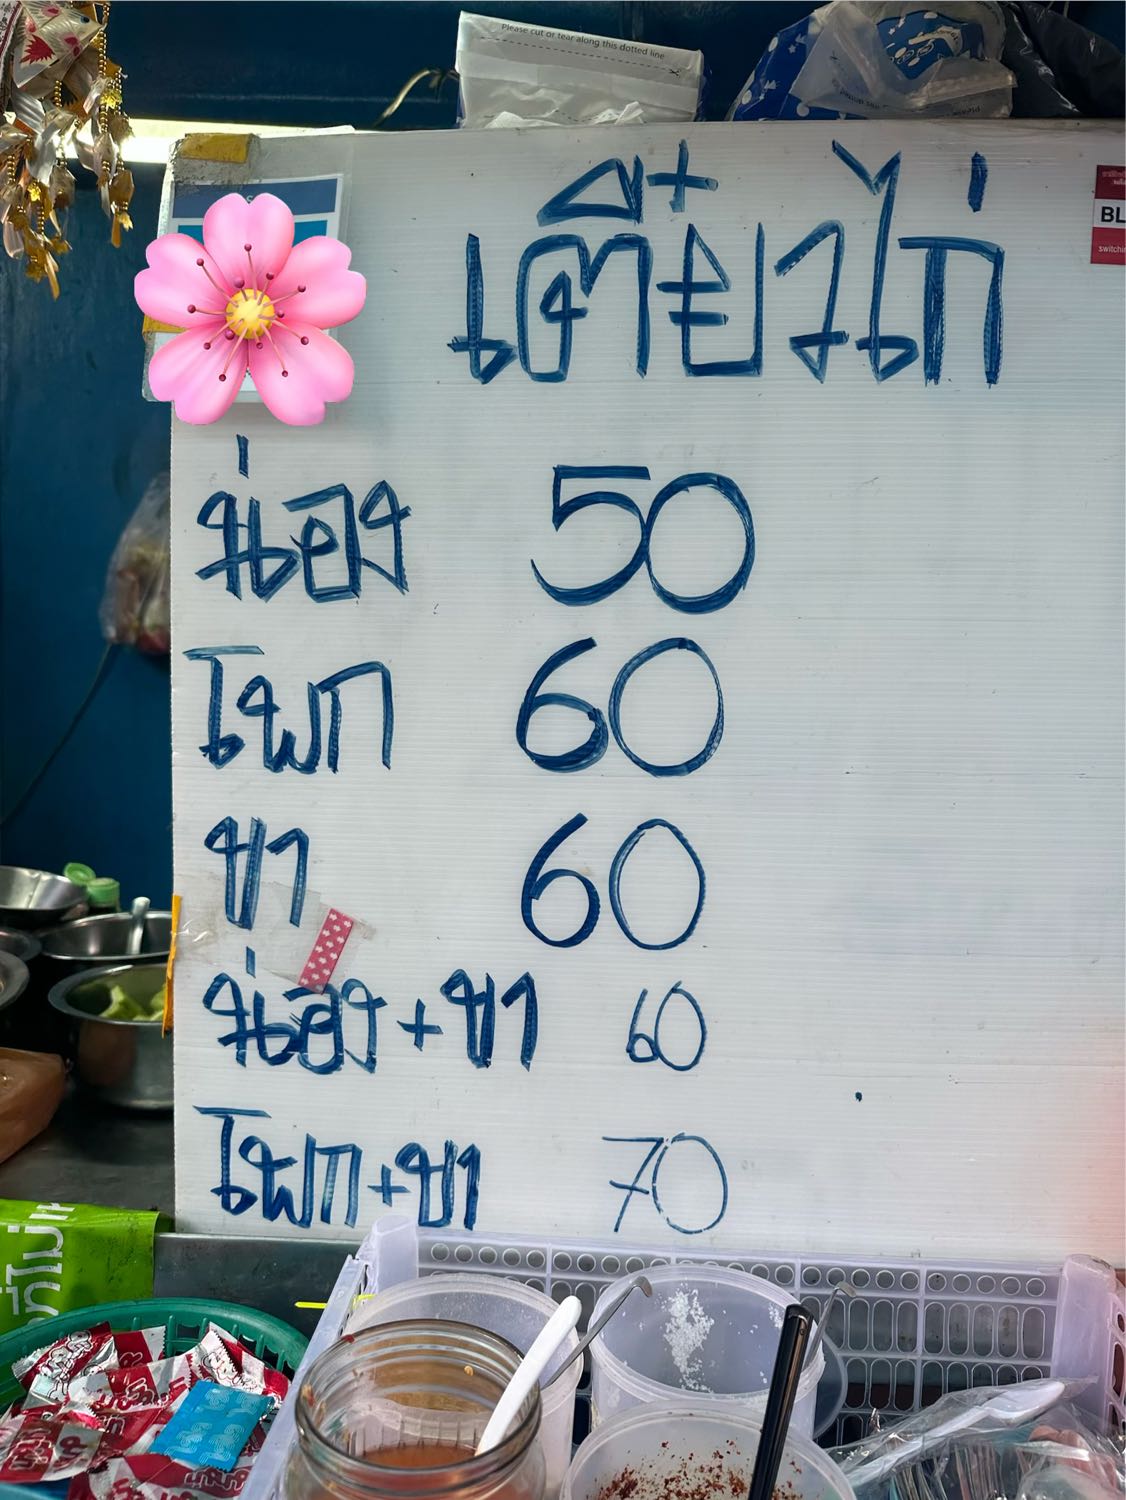 Please cut or tear along this dotted line
เตี๋ยวไก่
BL
switchin
น่อง 50
โพก 60
ขา 60
น่อง+ขา 60
โพก+ขา 70